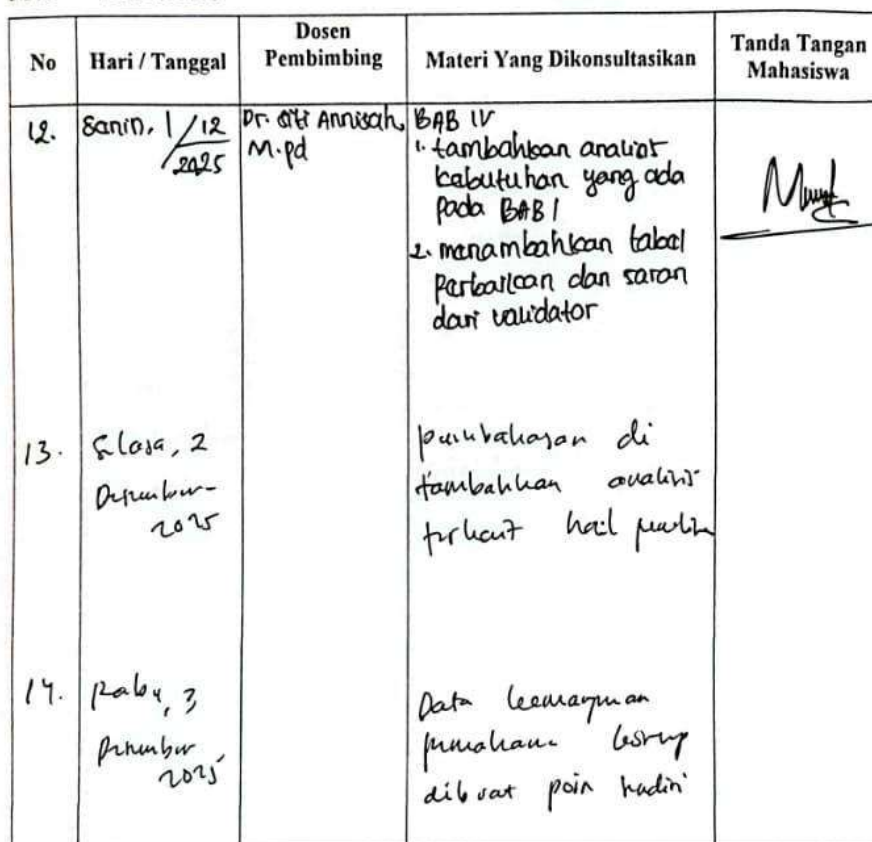 No
Hari / Tanggal
Dosen Pembimbing
Materi Yang Dikonsultasikan
Tanda Tangan Mahasiswa
12.
Senin, 1/12
2025
Dr. Siti Annisah,
M.pd
BAB IV
1. tambahkan analisis
kebutuhan yang ada
pada BAB I
2. menambahkan tabel
Perbaikan dan saran
dari validator
13.
Selasa, 2
Desember-
2025
pembahasan di
tambahkan analisis
terkait hasil
14.
Rabu, 3
Desember
2025
Data kemampuan
pemahaman konsep
dibuat poin